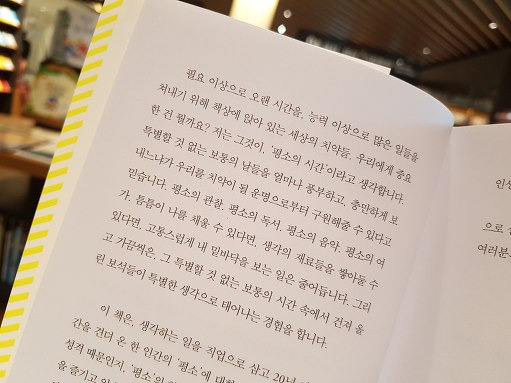 필요 이상으로 오랜 시간을, 능력 이상으로 많은 일들을
쳐내기 위해 책상에 앉아 있는 세상의 치약들, 우리에게 중요
한 건 뭘까요? 저는 그것이, '평소의 시간'이라고 생각합니다.
특별할 것 없는 보통의 날들을 얼마나 풍부하고, 충만하게 보
내느냐가 우리를 치약이 될 운명으로부터 구원해줄 수 있다고
믿습니다. 평소의 관찰, 평소의 독서, 평소의 음악, 평소의 여
가. 틈틈이 나를 채울 수 있다면, 생각의 재료들을 쌓아둘 수
있다면, 고통스럽게 내 밑바닥을 보는 일은 줄어듭니다. 그리
고 가끔씩은, 그 특별할 것 없는 보통의 시간 속에서 건져 올
린 보석들이 특별한 생각으로 태어나는 경험을 합니다.
이 책은, 생각하는 일을 직업으로 삼고 20년
간을 견뎌 온 한 인간의 '평소'에 대한
성격 때문인지, '평소'의
을 즐기고
인상
으로
여러분